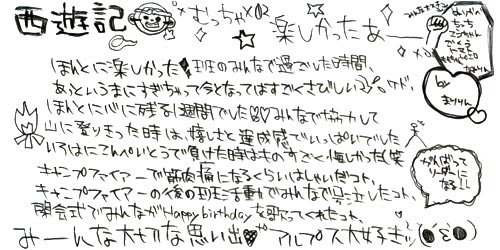 西遊記 むっちゃ×02 楽しかったあー
ほんとに楽しかった 班のみんなで過ごした時間、
あっというまにすぎちゃって今となってはすごくさびしい ケド、
ほんとに心に残る1週間でした みんなで協力して
山に登りきった時は、嬉しさと達成感でいっぱいでした
いろはにこんぺいとうで負けた時はものすごく悔しかった(笑
キャンプファイアーで筋肉痛になるくらいはしゃいだコト、
キャンプファイアーの後の班活動でみんなで号泣したコト、
閉会式でみんながHappy birthdayを歌ってくれたコト、
みーんな大切な思い出 アルプス大好きッ
by
まりりん
がんばって
リーダーに
なる!!